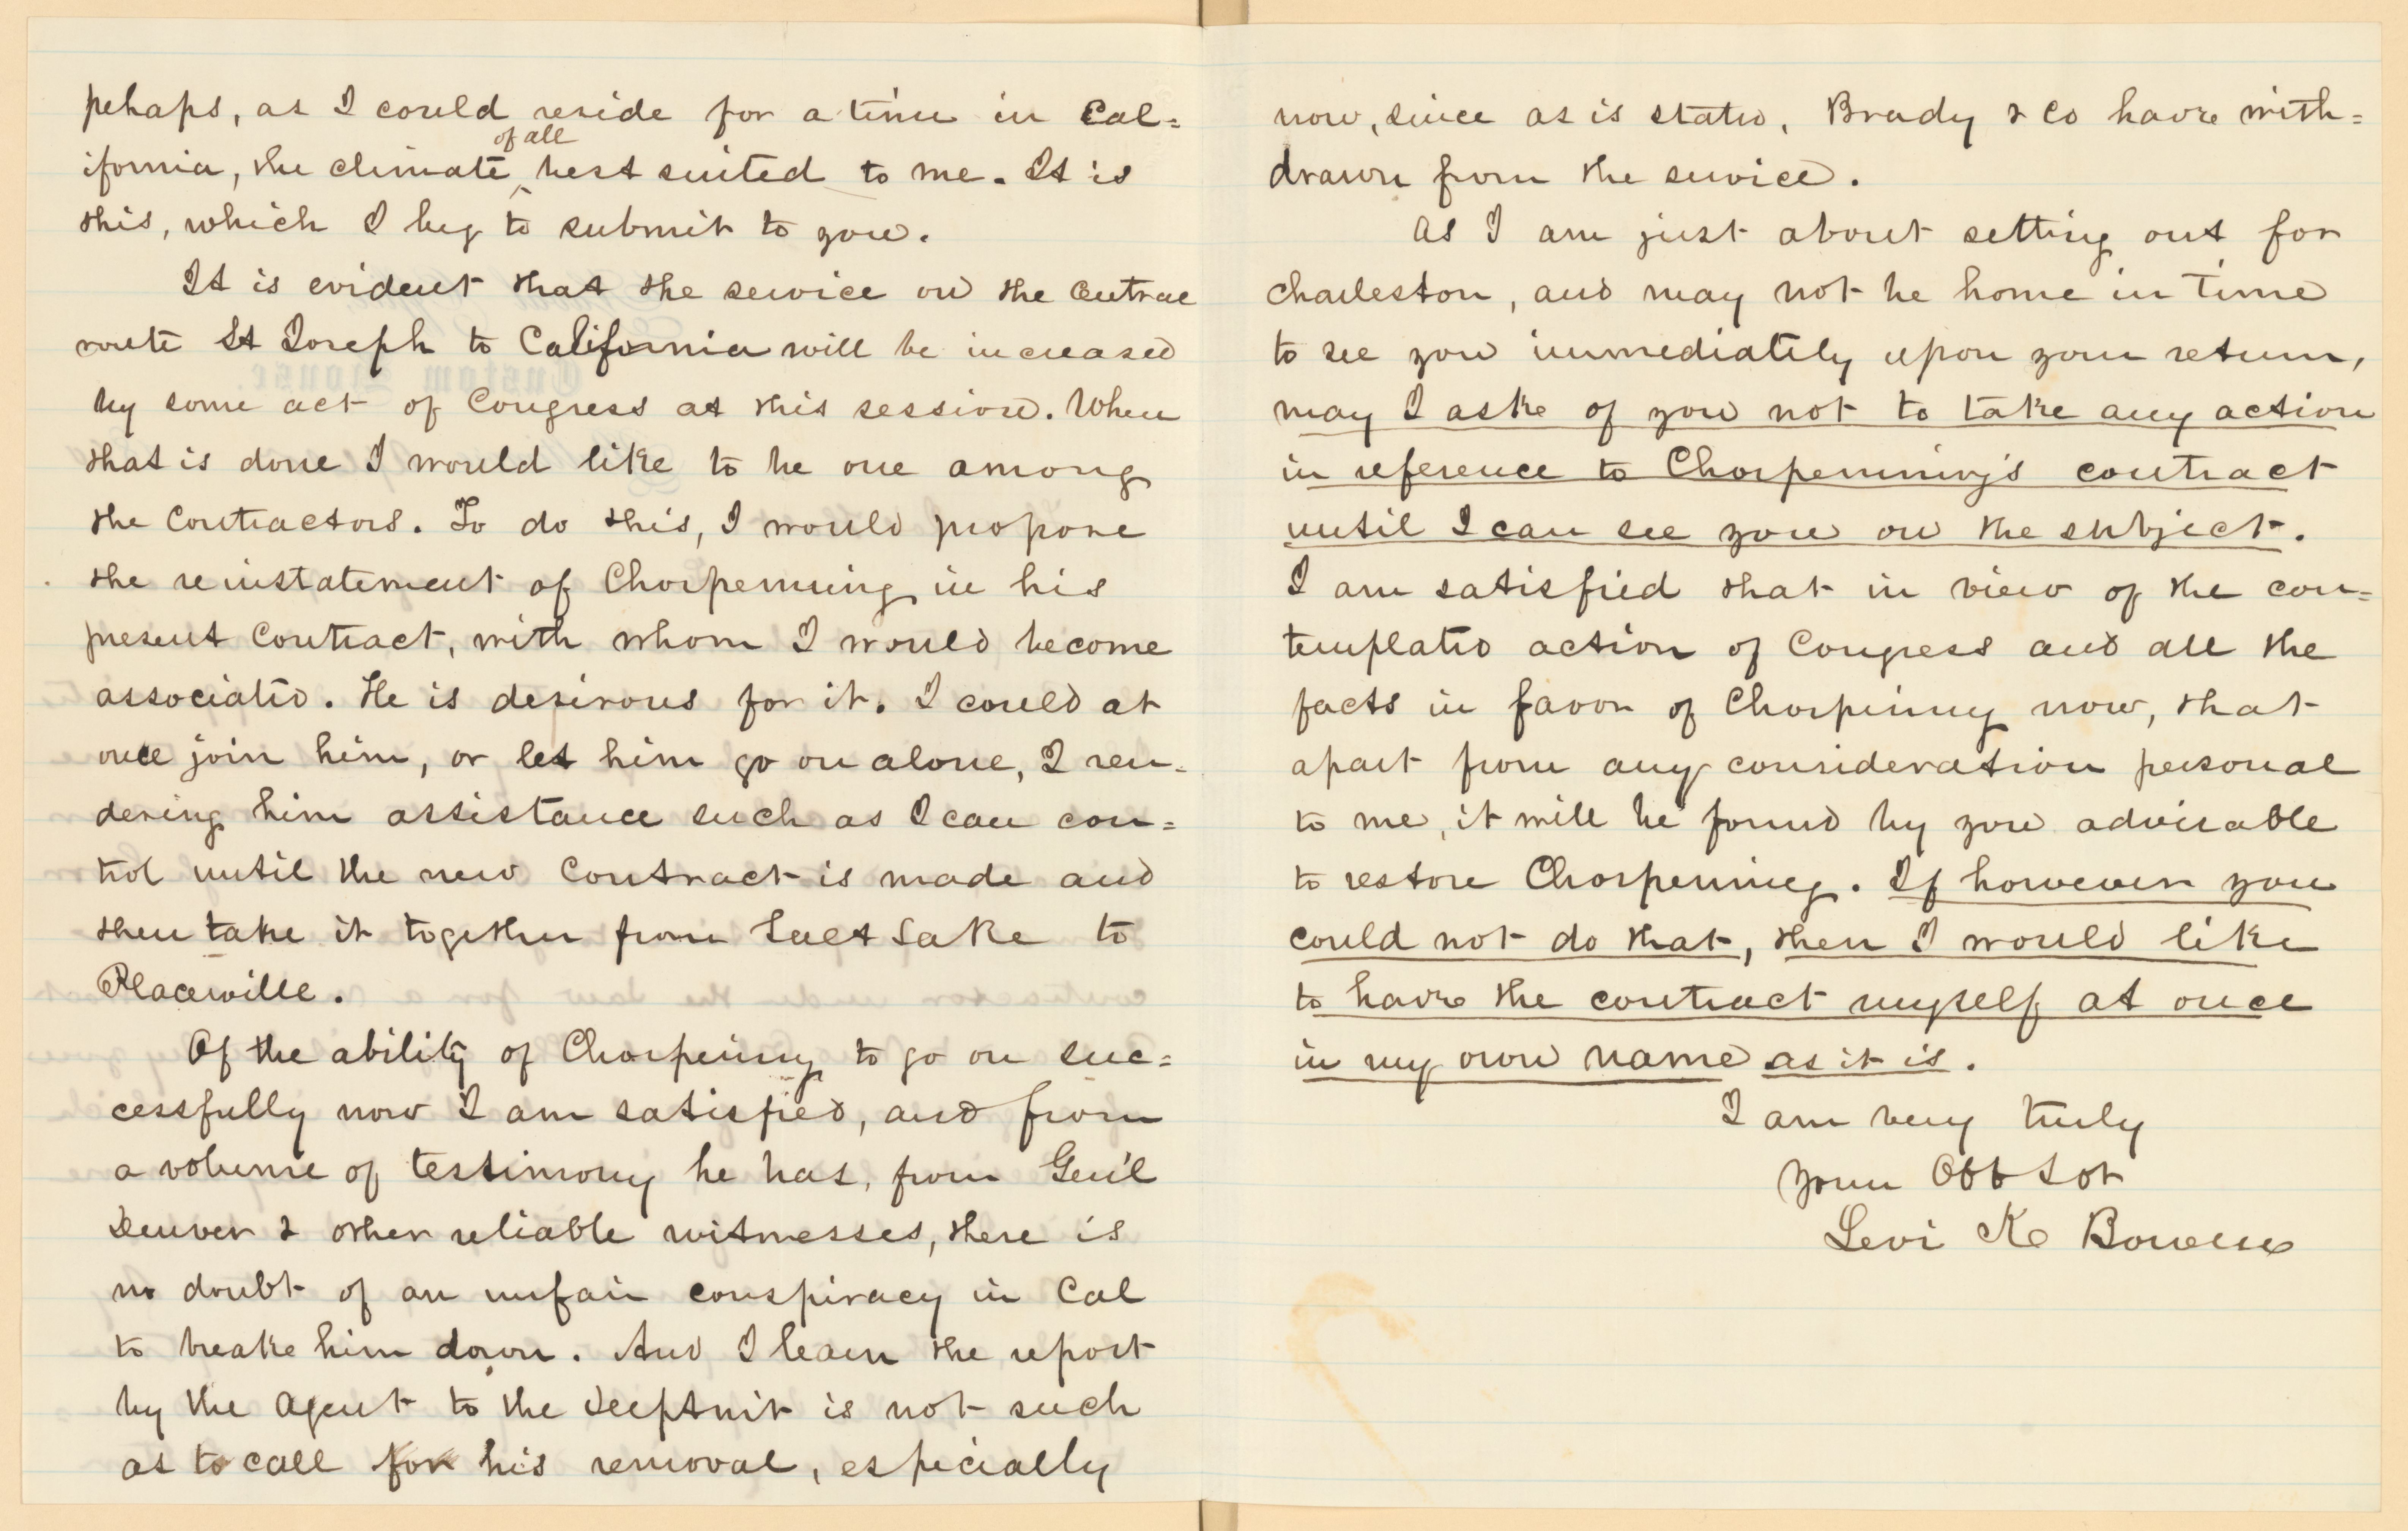 pehaps, as I could reside for a time in Cal=
of all
ifornia, the climate ^ best suited to me. It is
this, which I beg to submit to you.
It is evident that the service on the Central
route St Joseph to California will be increased
by some act of Congress at this session. When
that is done I would like to be one among
the Contractors. To do this, I would propose
the reinstatement of Chorpenning in his
present Contract, with whom I would become
associated. He is desirous for it. I could at
once join him, or let him go on alone, I ren-
dering him assistance such as I can con=
trol until the new Contract is made and
then take it together from Salt Lake to
Placerville.
Of the ability of Chorpenning to go on suc=
cessfully now I am satisfied, and from
a volume of testimony he has, from Gen'l
Denver & other reliable witnesses, there is
no doubt of an unfair conspiracy in Cal
to break him down. And I learn the report
by the Agent to the Deeptmit is not such
as to call for his removal, especially
now, since as is stated, Brady & Co have with=
drawn from the service.
As I am just about setting out for
Charleston, and may not be home in time
to see you immediately upon your return,
may I aske of you not to take any action
in reference to Chorpenning's contract
until I can see you on the subject.
I am satisfied that in view of the con=
templated action of Congress and all the
facts in favor of Chorpenning now, that
apart from any consideration personal
to me, it will be found by you advisable
to restore Chorpenning. If however you
could not do that, then I would like
to have the contract myself at once
in my own name as it is.
I am very truly
your Obt Svt
Levi K Bowen